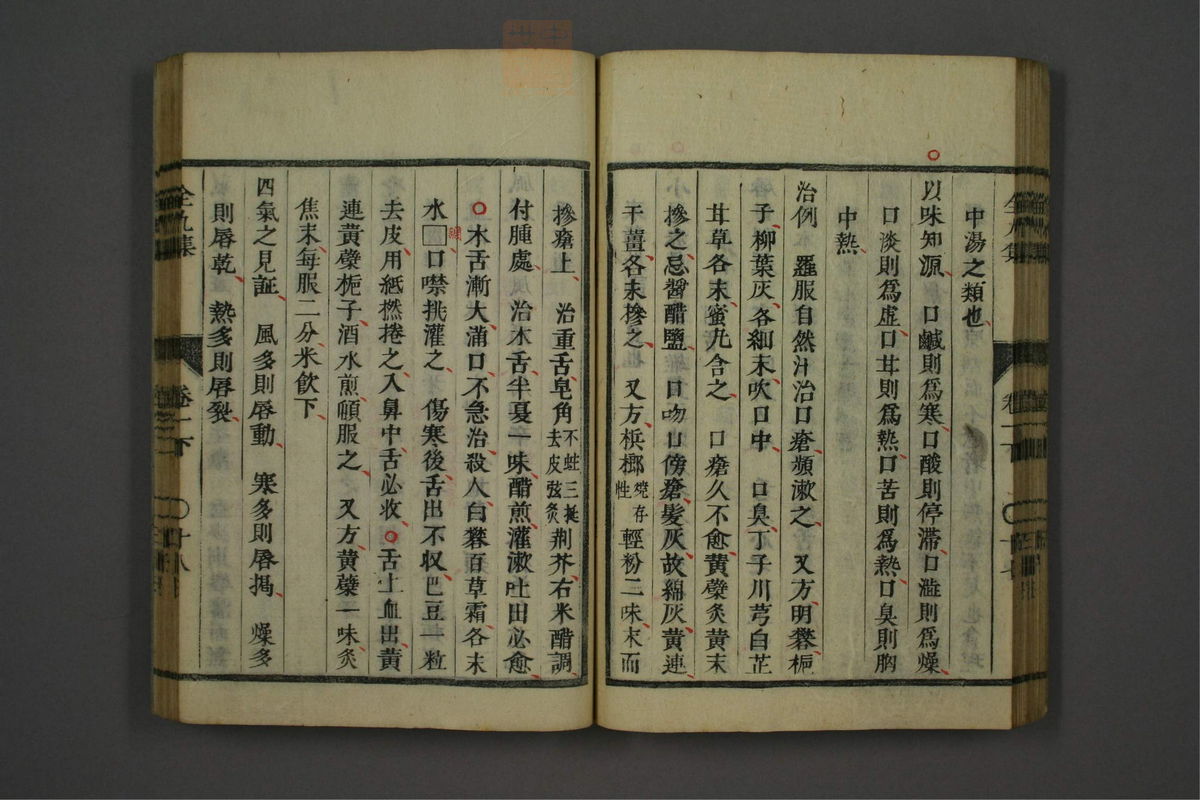 中湯之類也
以味知源　口鹹則爲寒口酸則停滯口澁則爲燥
口淡則爲虛口甘則爲熱口苦則爲熱口臭則胸
中熱
治例　羅服自然汁治口瘡頻漱之　又方明礬梔
子柳葉灰各細末吹口中　口臭丁子川芎白芷
甘草各末蜜丸含之　口瘡久不愈黄蘗炙黄末
摻之忌醤醋鹽　口吻口傍瘡髪灰故綿灰黄連
干薑各末摻之　又方檳榔燒存性輕粉二味末而
摻瘡上　治重舌皂角不蛀三挺去皮弦炙荆芥右米醋調
付腫處　治木舌半夏一味醋煎灌漱吐田必愈
木舌漸大滿口不急治殺人白礬百草霜各末
水口噤挑灌之　傷寒後舌出不収巴豆一粒
去皮用紙撚捲之入鼻中舌必收　舌上血出黄
連黄蘗梔子酒水煎頓服之　又方黄蘗一味炙
焦末每服二分米飲下
四氣之見証　風多則唇動　寒多則唇揭　燥多
則唇乾　熱多則唇裂
全九集　卷一下　十七
全九集　卷一下　十八